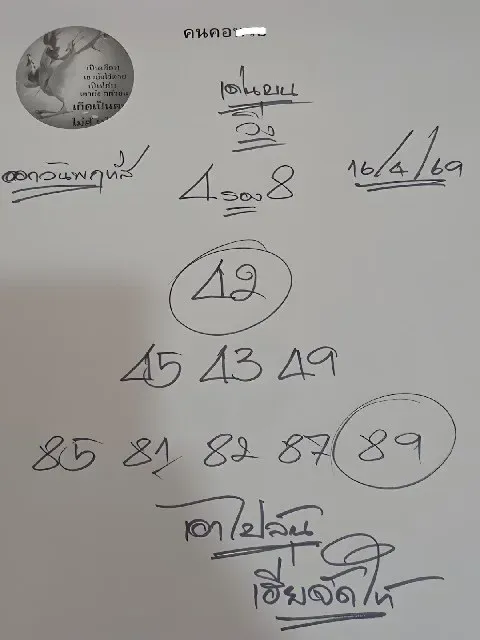 คนคอ
เด่นบน
วิ่ง
ออกวันพฤหัส
16/4/69
4 รอง 8
42
45 43 49
85 81 82 87 89
เอาไปลุ้น
เฮียจัดให้
เกิดเป็นค